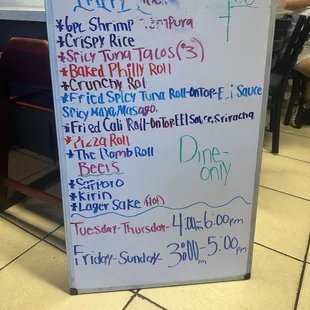 *6pc Shrimp Tempura
*Crispy Rice
*Spicy Tuna Tacos (3)
*Baked Philly Roll
*Crunchy Roll
*Fried Spicy Tuna Roll-onTop-Eel Sauce
Spicy Mayo, Masago.
*Fried Cali Roll-onTop EEl Sauce, Sriracha
*Pizza Roll
*The Bomb Roll
Dine-
only
Beers
*Sapporo
*Kirin
*Lager Sake (Hot)
Tuesday-Thursday-4:00-6:00pm
Friday-Sunday-3:00-5:00pm